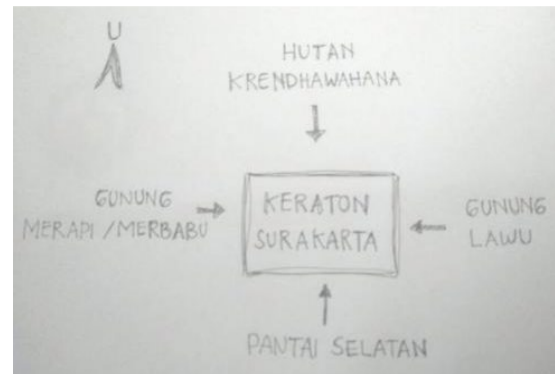 U
HUTAN
KRENDHAWAHANA
GUNUNG
MERAPI / MERBABU
KERATON
SURAKARTA
GUNUNG
LAWU
PANTAI SELATAN